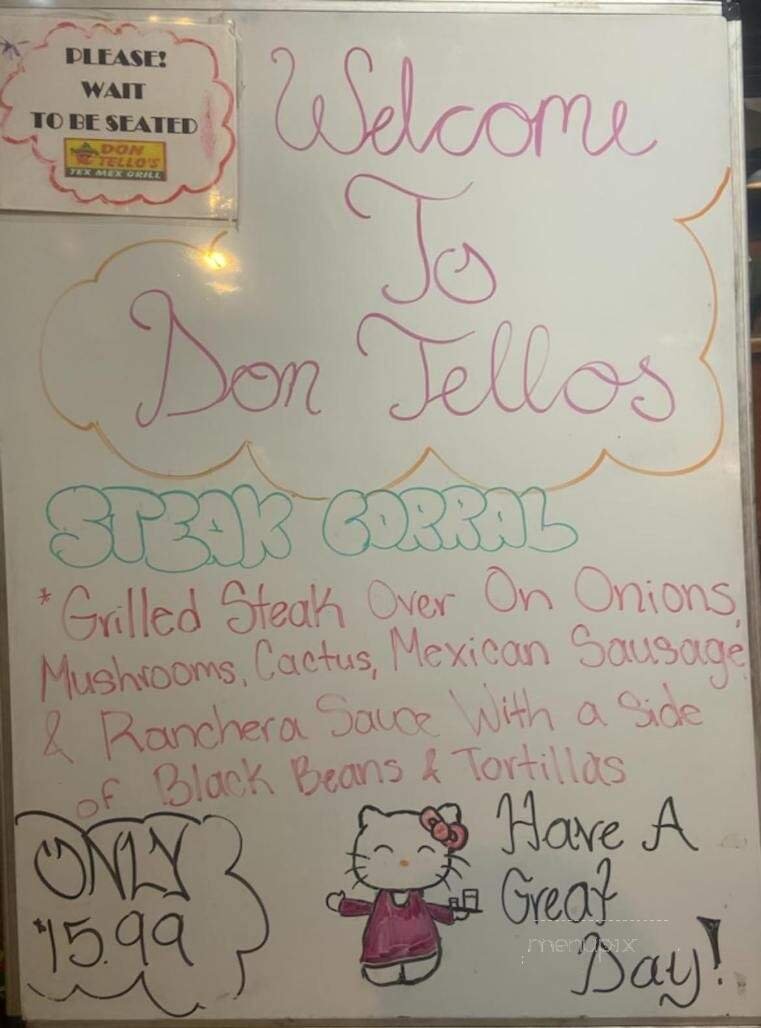 PLEASE!
WAIT
TO BE SEATED
DON
TELLO'S
TEX MEX GRILL
Welcome
To
Don Tellos
STEAK CORRAL
*Grilled Steak Over On Onions,
Mushrooms, Cactus, Mexican Sausage
& Ranchera Sauce With a Side
of Black Beans & Tortillas
ONLY
$15.99
Have A
Great
Day!
menupix